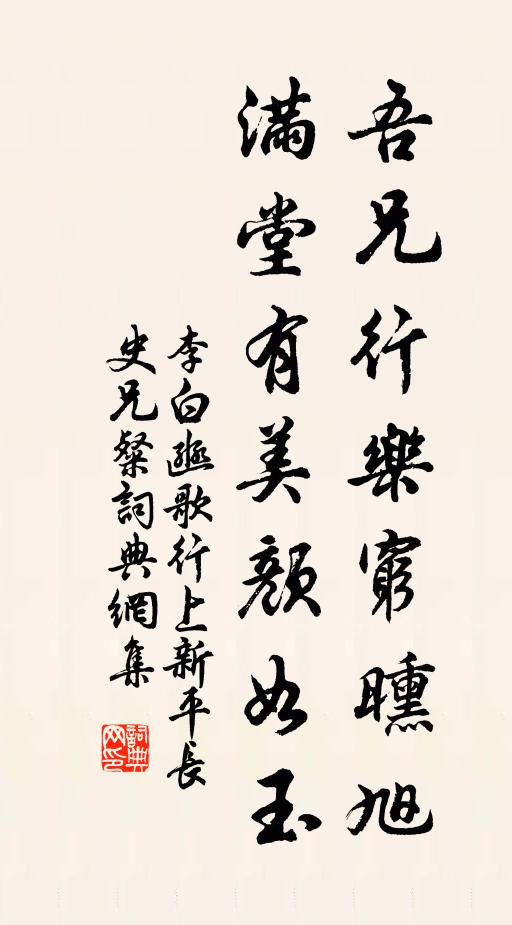 吾兄行樂窮曛旭
滿堂有美顏如玉
李白豳歌行上新平長
史兄粲詞典網集
詞典
网印